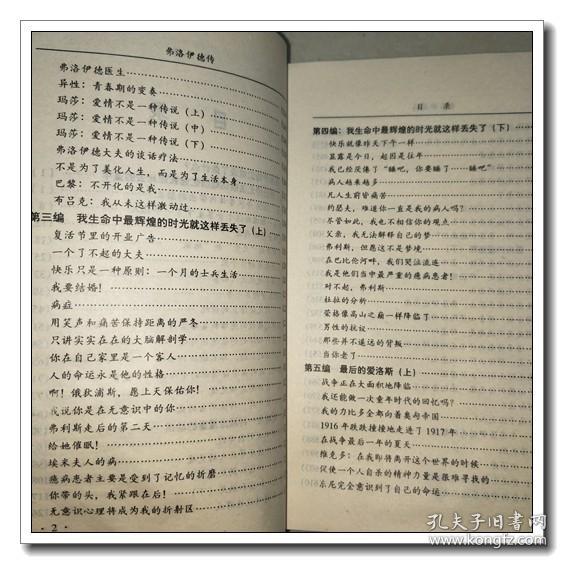 弗洛伊德传
弗洛伊德医生
异性：青春期的变奏
玛莎：爱情不是一种传说（上）
玛莎：爱情不是一种传说（中）
玛莎：爱情不是一种传说（下）
弗洛伊德大夫的谈话疗法
不是为了美化人生，而是为了生活本身
巴黎：不开化的是我
布吕克：我从未这样激动过
第三编 我生命中最辉煌的时光就这样丢失了（上）
复活节里的开业广告
一个了不起的大夫
快乐只是一种原则：一个月的士兵生活
我要结婚！
病症
用笑声和痛苦保持距离的严冬
只讲实实在在的大脑解剖学
你在自己家里是一个客人
人的命运永是他的性格
啊！俄狄浦斯，愿上天保佑你！
我说你是在无意识中的你
弗利斯走后的第二天
给她催眠！
埃米夫人的病
癔病患者主要是受到了记忆的折磨
你带的头，我紧跟在后！
无意识心理将成为我的折射区
·2·
目 录
第四编：我生命中最辉煌的时光就这样丢失了（下）
快乐就像昨天下午一样
显露是今日，起因是往年
我已经没落了“睡吧，你要睡了……睡吧”
病人越来越多
凡人生前皆痛苦
约瑟夫，难道你一直是我的病人吗？
尽管如此，我也不相信你的观点
父亲，我无法解释自己的梦
弗利斯，但愿这不是梦境
在巴比伦河畔，我们哭泣流连
我是他们当中最严重的癔病患者！
对不起，弗利斯
杜拉的分析
荣格像高山之巅一样降临了
男性的抗议
那些并不遥远的背叛
当你老了
第五编 最后的爱洛斯（上）
战争正在大面积地降临
我还能做一次童年时代的回忆吗？
我的力比多全部向着奥匈帝国
1916 年跌跌撞撞地走进了 1917 年
在战争最后一年的夏天
维克多：在我即将离开这个世界的时候
促使一个人自杀的精神力量是很难寻找的
东尼完全意识到了自己的命运
孔夫子旧书网
www.kongfz.com